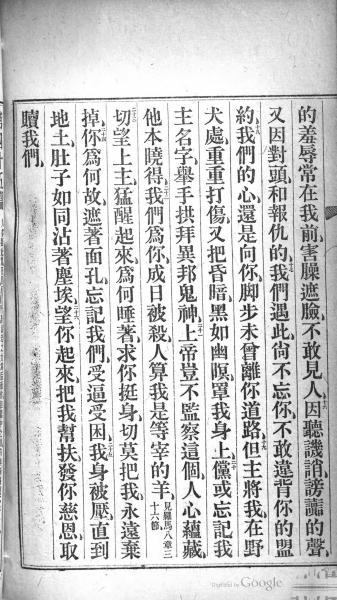 的羞辱常在我前害臊遮臉不敢見人十六因聽譏誚謗讟的聲
又因對頭和報仇的十七我們遇此尙不忘你不敢違背你的盟
約十八我們的心還是向你脚步未曾離你道路十九但主將我在野
犬處重重打傷又把昏暗黑如幽暝罩我身上二十儻或忘記我
主名字舉手拱拜異邦鬼神二十一上帝豈不監察這個人心蘊藏
他本曉得二十二我們爲你成日被殺人算我是等宰的羊見羅馬八章三十六節
二十三切望上主猛醒起來爲何睡著求你挺身切莫把我永遠棄
掉二十四你爲何故遮著面孔忘記我們受逼受困二十五我身被壓直到
地土肚子如同沾著塵埃二十六望你起來把我幫扶發你慈恩取
贖我們
Digitized by Google